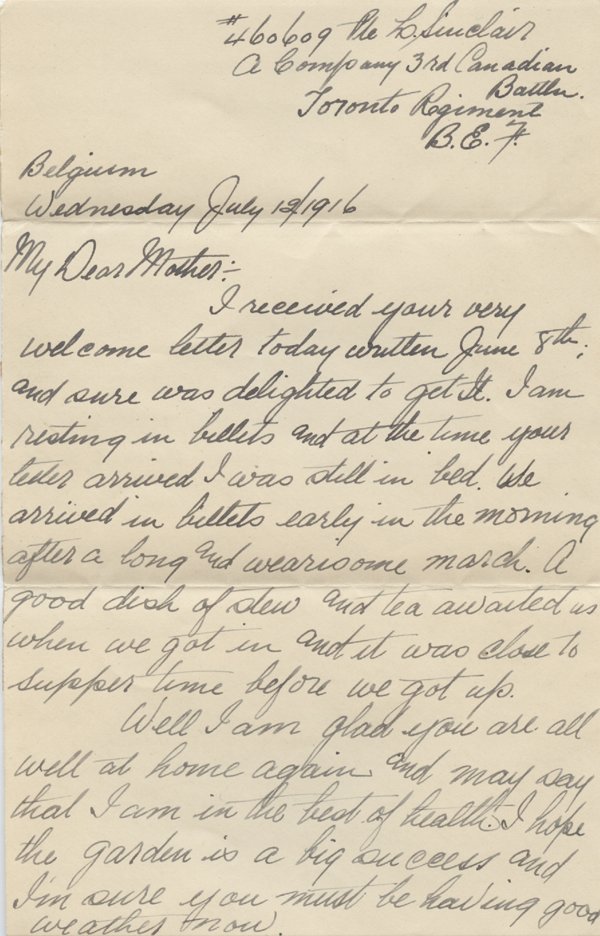 #460609 Pte L. Sinclair
A Company 3rd Canadian
Battln.
Toronto Regiment
B.E.F.
Belgium
Wednesday July 12/1916
My Dear Mother:-
I received your very
welcome letter today written June 8th;
and sure was delighted to get it. I am
resting in billets and at the time your
letter arrived I was still in bed. We
arrived in billets early in the morning
after a long and wearisome march. A
good dish of stew and tea awaited us
when we got in and it was close to
supper time before we got up.
Well I am glad you are all
well at home again and may say
that I am in the best of health. I hope
the garden is a big success and
I'm sure you must be having good
weather now.